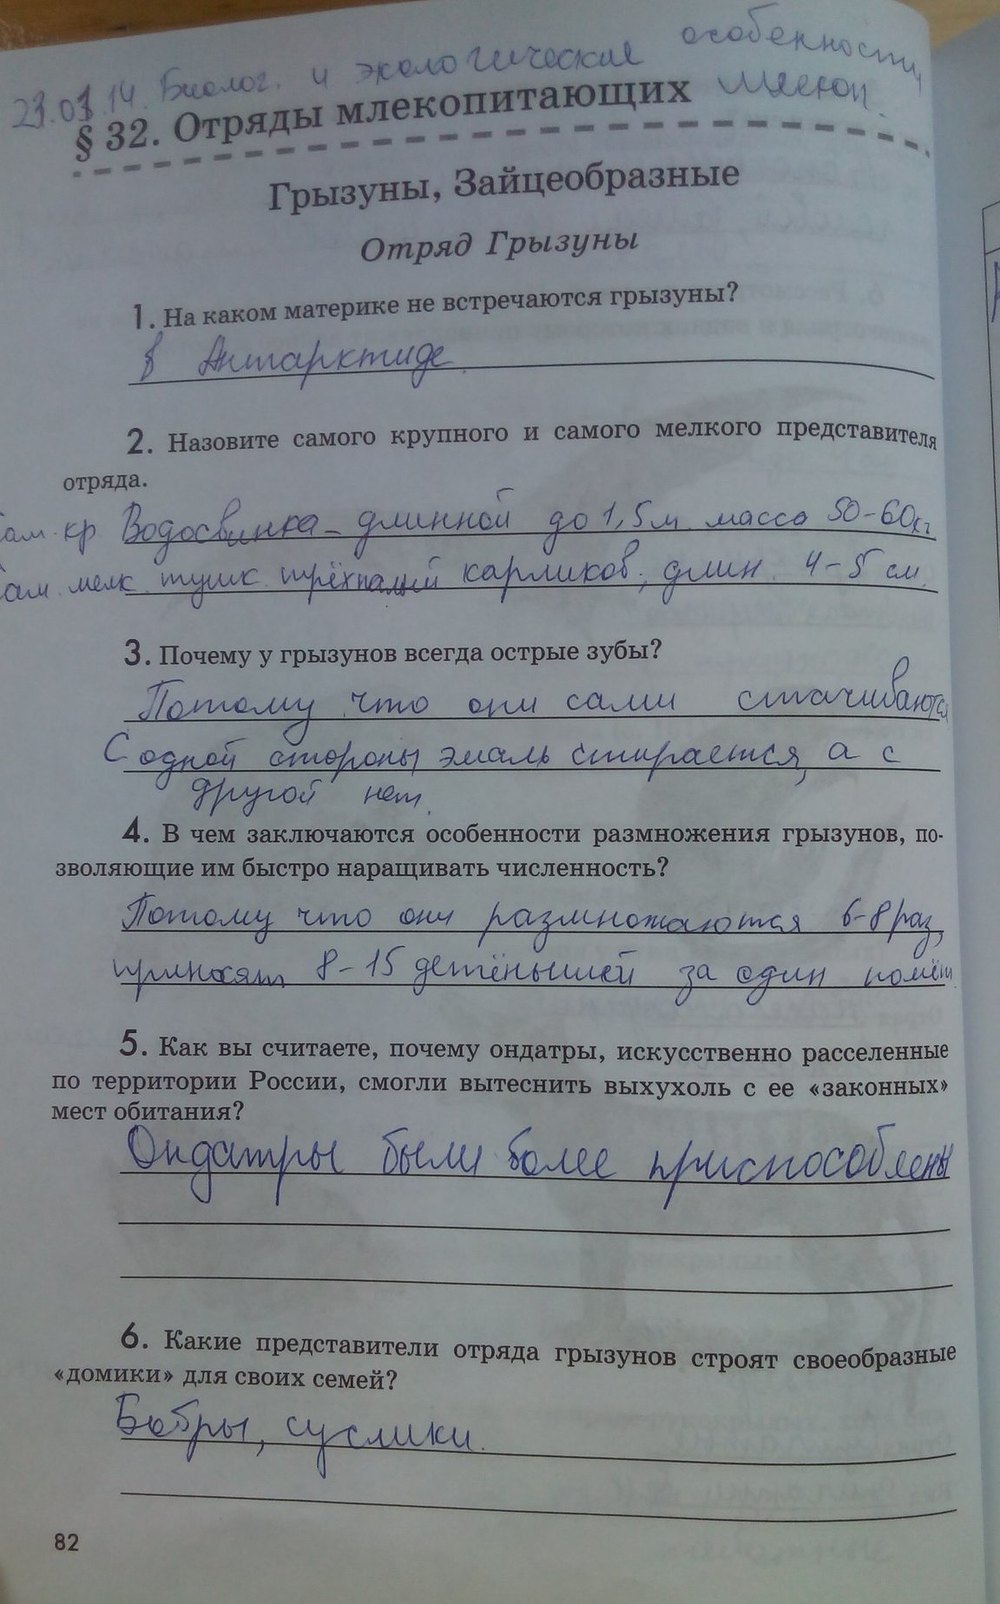 23.01.14. Биолог. и экологические особенности,
§ 32. Отряды млекопитающих млекоп.
Грызуны, Зайцеобразные
Отряд Грызуны
1. На каком материке не встречаются грызуны?
в Антарктиде.
2. Назовите самого крупного и самого мелкого представителя
отряда.
Сам. кр Водосвинка – длинной до 1,5 м масса 50–60кг
Сам. мелк тушк. трёхпалый карликов, длин. 4–5 см.
3. Почему у грызунов всегда острые зубы?
Потому что они сами стачиваются
С одной стороны эмаль стирается, а с
другой нет.
4. В чем заключаются особенности размножения грызунов, по-
зволяющие им быстро наращивать численность?
Потому что они размножаются 6–8 раз,
приносят 8–15 детёнышей за один помёт.
5. Как вы считаете, почему ондатры, искусственно расселенные
по территории России, смогли вытеснить выхухоль с ее «законных»
мест обитания?
Ондатры были более приспособлены
6. Какие представители отряда грызунов строят своеобразные
«домики» для своих семей?
Бобры, суслики.
82